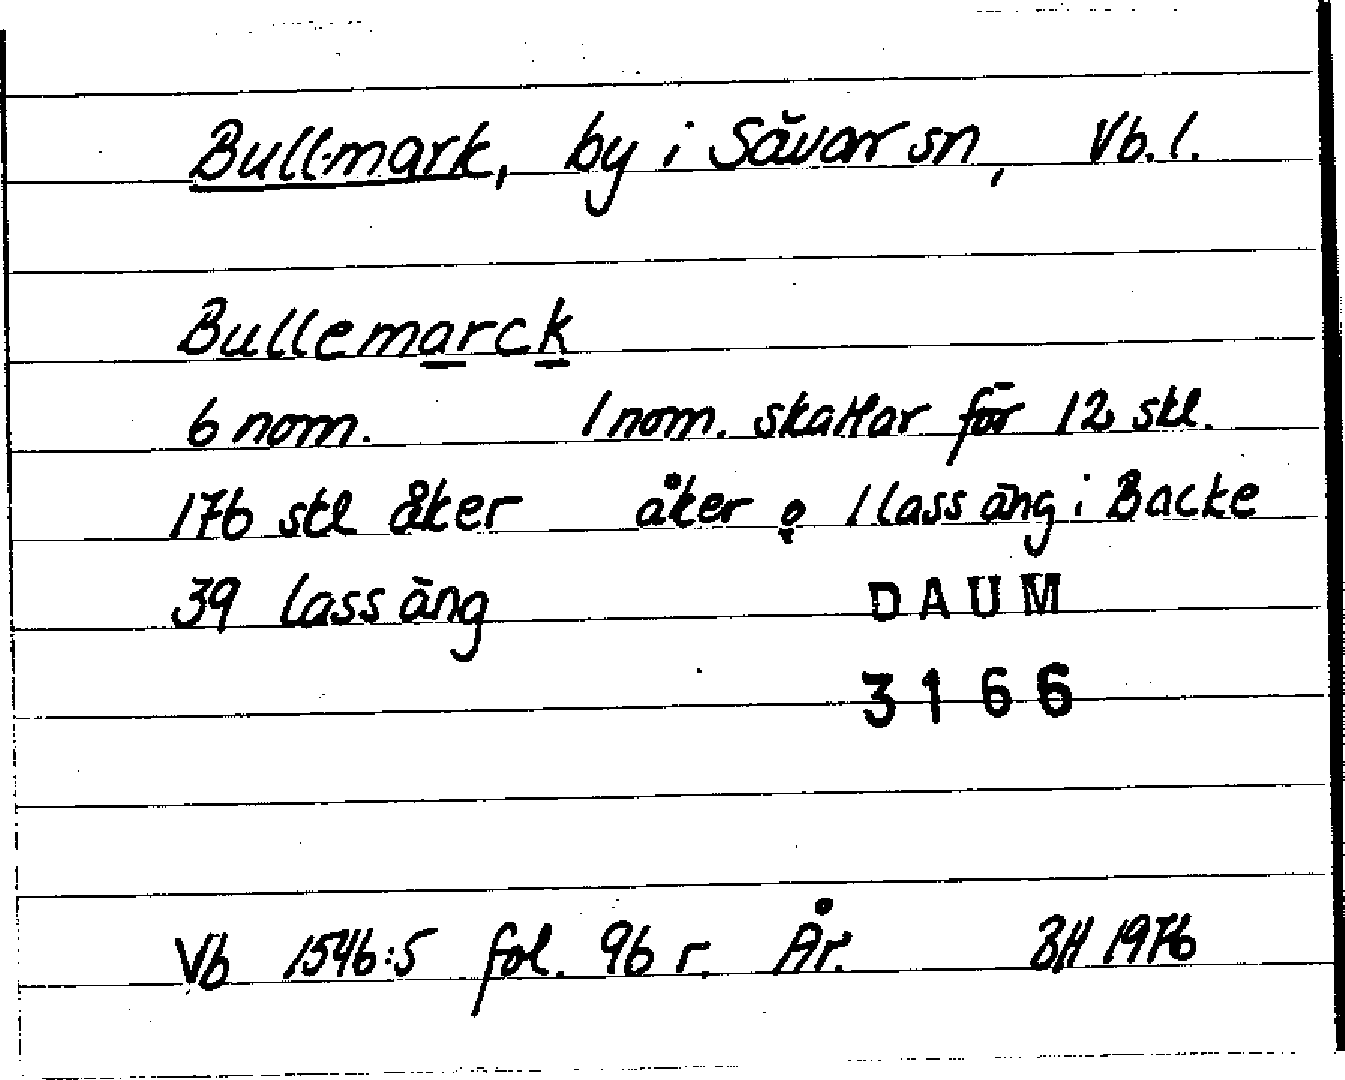 Bullmark, by i Sävar sn, Vb. l.
Bullemarck
6 nom. 1 nom. skattar för 12 skl.
176 skl åker åker o 1 lass äng i Backe
39 lass äng
DAUM
3166
Vb 1546:5 fol. 96 r. År. BH 1976